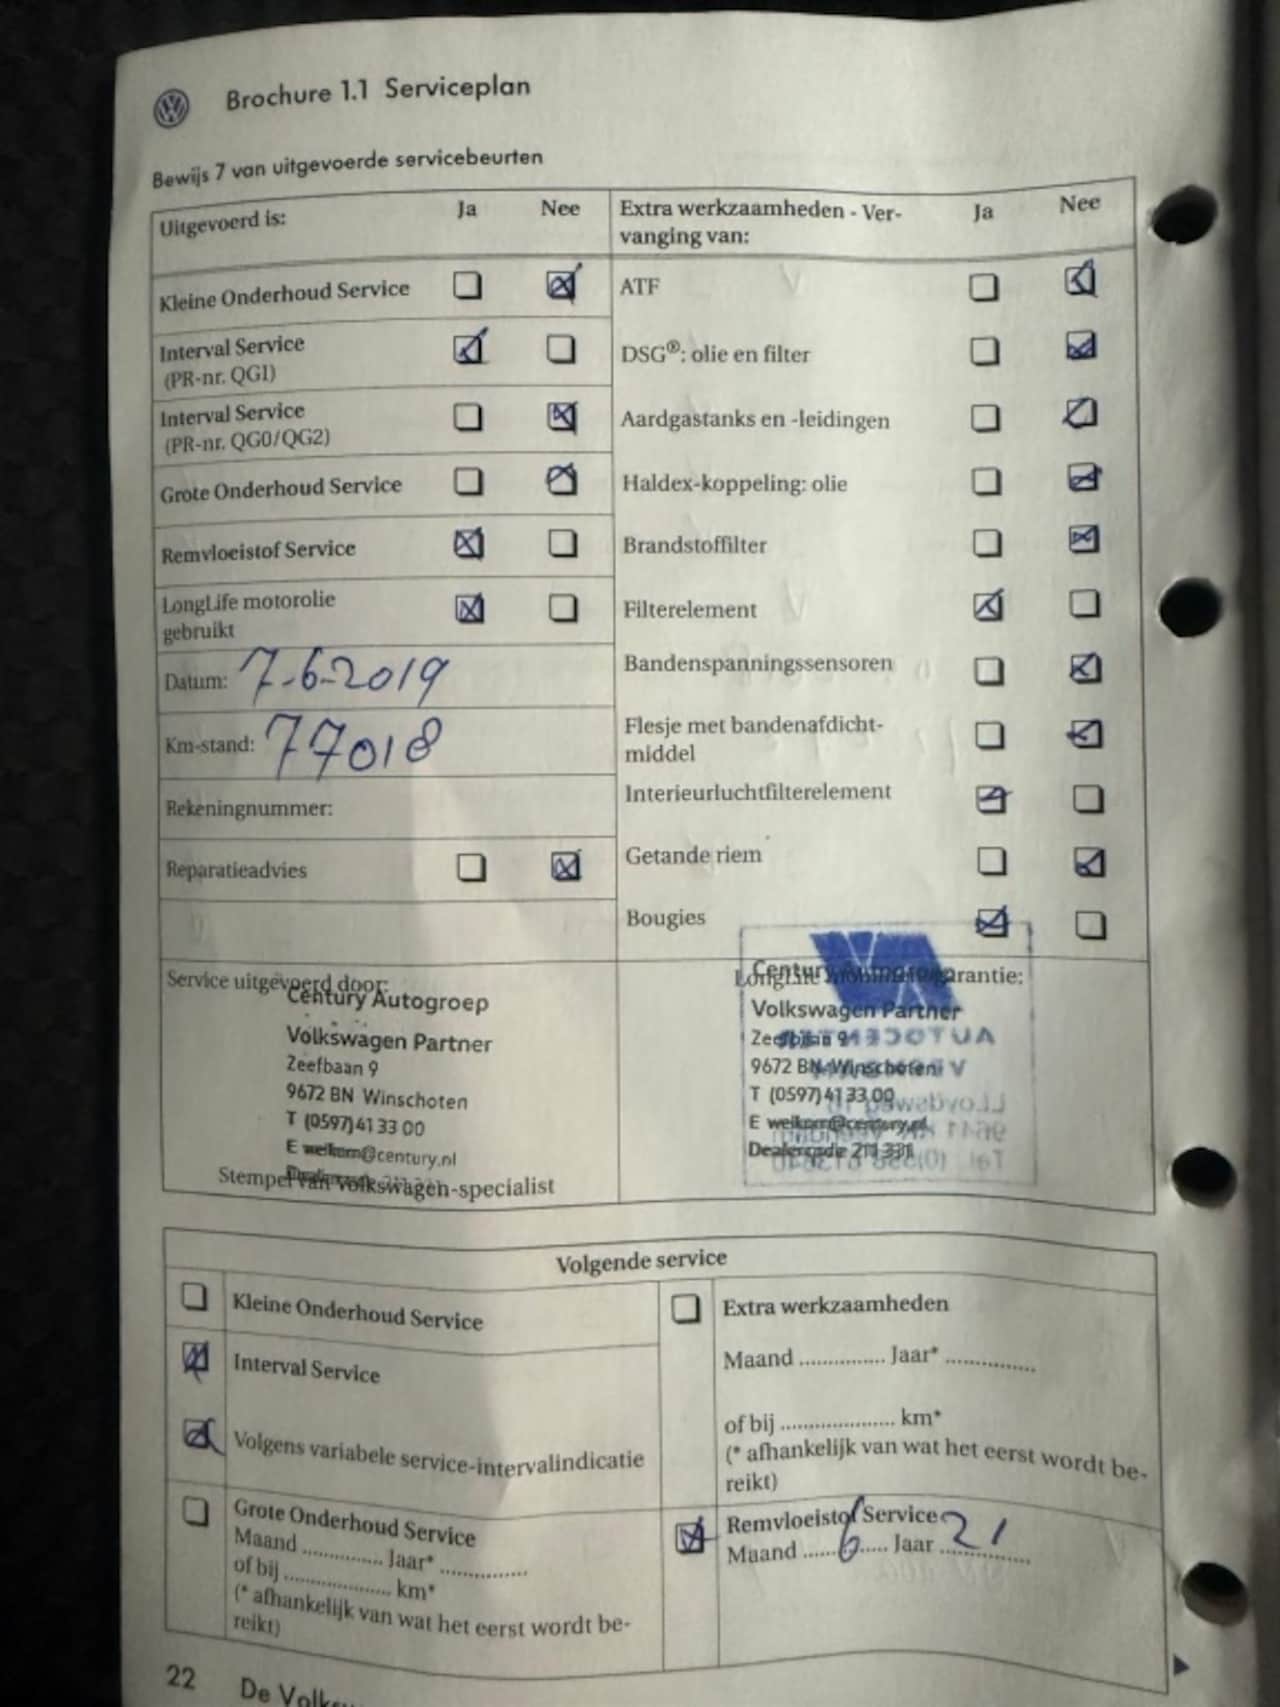 Brochure 1.1 Serviceplan
Bewijs 7 van uitgevoerde servicebeurten
Uitgevoerd is: Ja Nee
Kleine Onderhoud Service
Interval Service
(PR-nr. QG1)
Interval Service
(PR-nr. QG0/QG2)
Grote Onderhoud Service
Remvloeistof Service
LongLife motorolie
gebruikt
Datum: 7-6-2019
Km-stand: 77018
Rekeningnummer:
Reparatieadvies
Extra werkzaamheden - Ver-
vanging van: Ja Nee
ATF
DSG®: olie en filter
Aardgastanks en -leidingen
Haldex-koppeling: olie
Brandstoffilter
Filterelement
Bandenspanningssensoren
Flesje met bandenafdicht-
middel
Interieurluchtfilterelement
Getande riem
Bougies
Service uitgevoerd door:
Century Autogroep
Volkswagen Partner
Zeefbaan 9
9672 BN Winschoten
T (0597) 41 33 00
E welkom@century.nl
Stempel van Volkswagen-specialist
Century Autogroep
Volkswagen Partner
Zeefbaan 9
9672 BN Winschoten
T (0597) 41 33 00
E welkom@century.nl
Dealercode 211 331
Volgende service
Kleine Onderhoud Service
Interval Service
Volgens variabele service-intervalindicatie
Grote Onderhoud Service
Maand .............. Jaar* ...............
of bij .................. km*
(* afhankelijk van wat het eerst wordt be-
reikt)
Extra werkzaamheden
Maand ............... Jaar* ...............
of bij .................... km*
(* afhankelijk van wat het eerst wordt be-
reikt)
Remvloeistof Service
Maand 6 Jaar 21
22